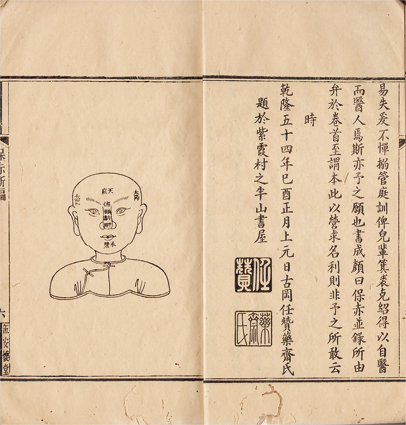 易失爰不憚搦管庭訓俾兒輩箕裘克紹得以自醫
而醫人焉斯亦予之願也書成顏曰保赤並錄所由
弁於卷首至謂本此以營求名利則非予之所敢云
時
乾隆五十四年巳酉正月上元日古岡任贊藥齋氏
題於紫霞村之半山書屋
任贊
藥齋氏
保赤新編
六
天庭